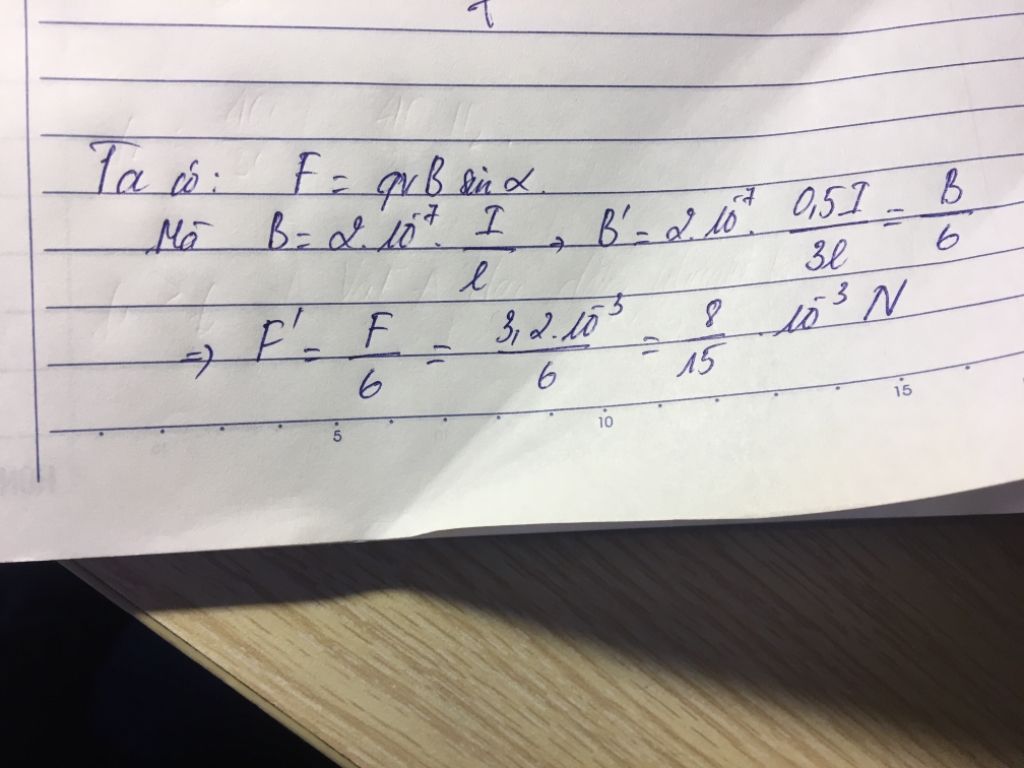 Ta có: F = qvB sin α.
Mà B = 2.10⁻⁷. I/l → B' = 2.10⁻⁷. 0,5I/3l = B/6
=> F' = F/6 = 3,2.10⁻³/6 = 8/15 . 10⁻³ N
5 10 15